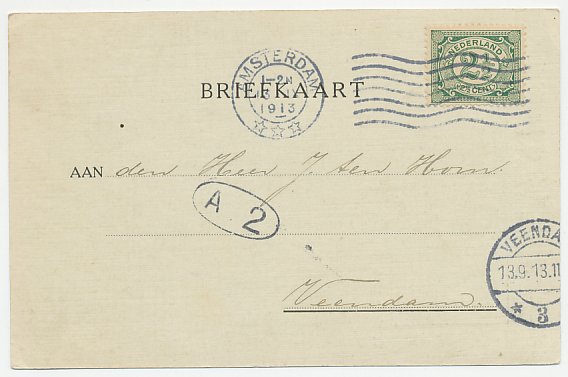 AMSTERDAM
1-2N
1913
NEDERLAND
2½
CENT
BRIEFKAART
AAN den Heer J. ten Horn.
A 2
VEENDA
13.9.13.11
* 3
Veendam.